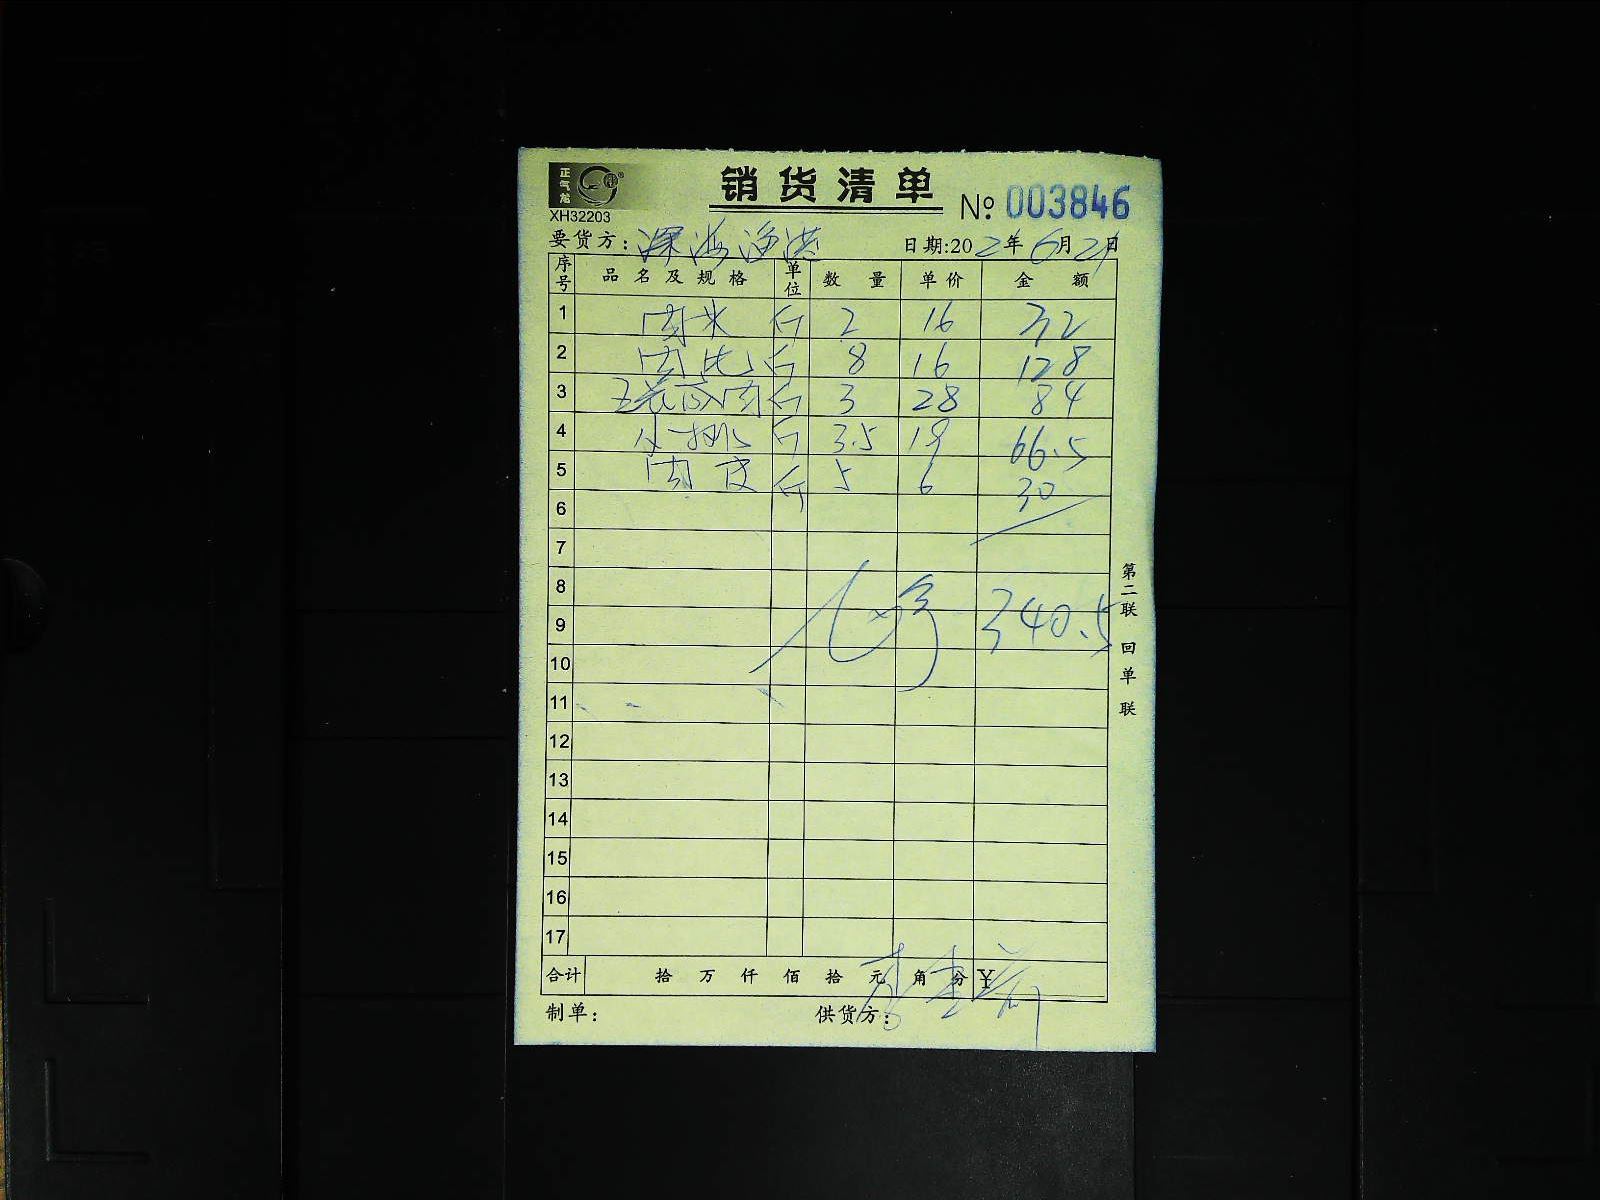 正气龙
XH32203
销货清单
№ 003846
要货方：深海渔港 日期:202 年6月21日
序号 品名及规格 单位 数量 单价 金额
1 肉 斤 2 16 32
2 肉 斤 8 16 128
3 五花肉 斤 3 28 84
4 小排 斤 3.5 19 66.5
5 肉皮 斤 5 6 30
6
7
8
9 340.5
10
11
12
13
14
15
16
17
合计 拾 万 仟 佰 拾 元 角 分 ¥
制单： 供货方：
第二联 回单联